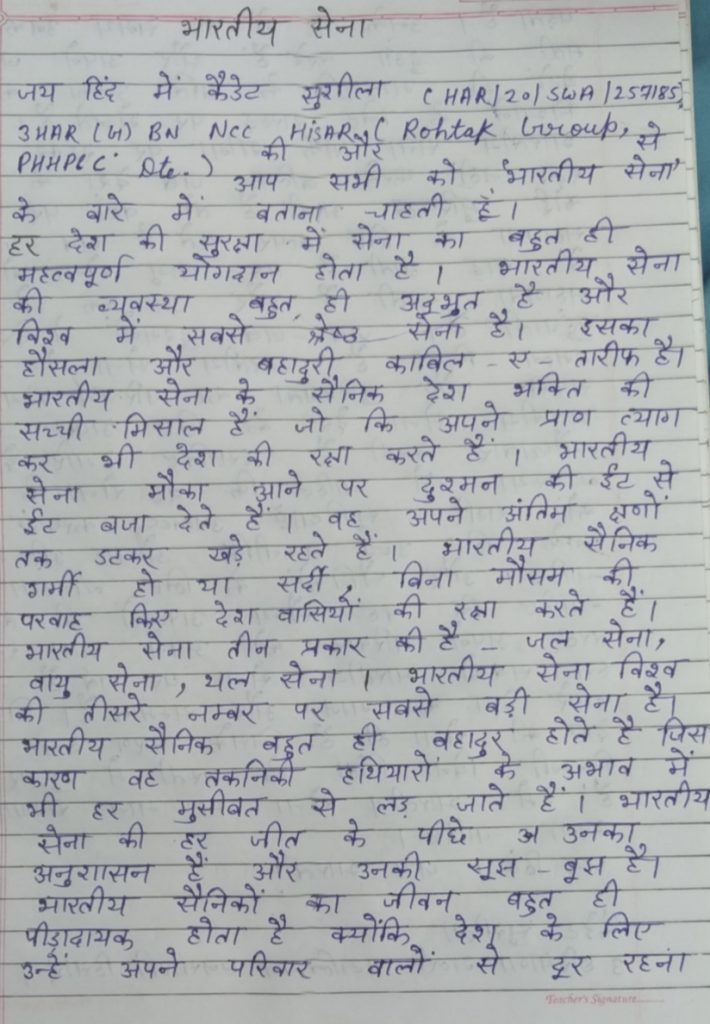 भारतीय सेना
जय हिंद में कैडेट सुशीला ( HAR/20/SWA/257185,
3HAR (W) BN NCC HISAR ( Rohtak Group,
PHHPCC Dte. ) की और से
आप सभी को 'भारतीय सेना'
के बारे में बताना चाहती हूँ।
हर देश की सुरक्षा में सेना का बहुत ही
महत्वपूर्ण योगदान होता है। भारतीय सेना
की व्यवस्था बहुत ही अद्भुत है और
विश्व में सबसे श्रेष्ठ सेना है। इसका
हौसला और बहादुरी काबिल - ए - तारीफ है।
भारतीय सेना के सैनिक देश भक्ति की
सच्ची मिसाल हैं जो कि अपने प्राण त्याग
कर भी देश की रक्षा करते हैं। भारतीय
सेना मौका आने पर दुश्मन की ईंट से
ईंट बजा देते हैं। वह अपने अंतिम क्षणों
तक डटकर खड़े रहते हैं। भारतीय सैनिक
गर्मी हो या सर्दी, बिना मौसम की
परवाह किए देश वासियों की रक्षा करते हैं।
भारतीय सेना तीन प्रकार की है - जल सेना,
वायु सेना, थल सेना। भारतीय सेना विश्व
की तीसरे नम्बर पर सबसे बड़ी सेना है।
भारतीय सैनिक बहुत ही बहादुर होते है जिस
कारण वह तकनिकी हथियारों के अभाव में
भी हर मुसीबत से लड़ जाते हैं। भारतीय
सेना की हर जीत के पीछे अ उनका
अनुशासन हैं और उनकी सूझ - बूझ है।
भारतीय सैनिकों का जीवन बहुत ही
पीड़ादायक होता है क्योंकि देश के लिए
उन्हें अपने परिवार वालों से दूर रहना
Teacher's Signature